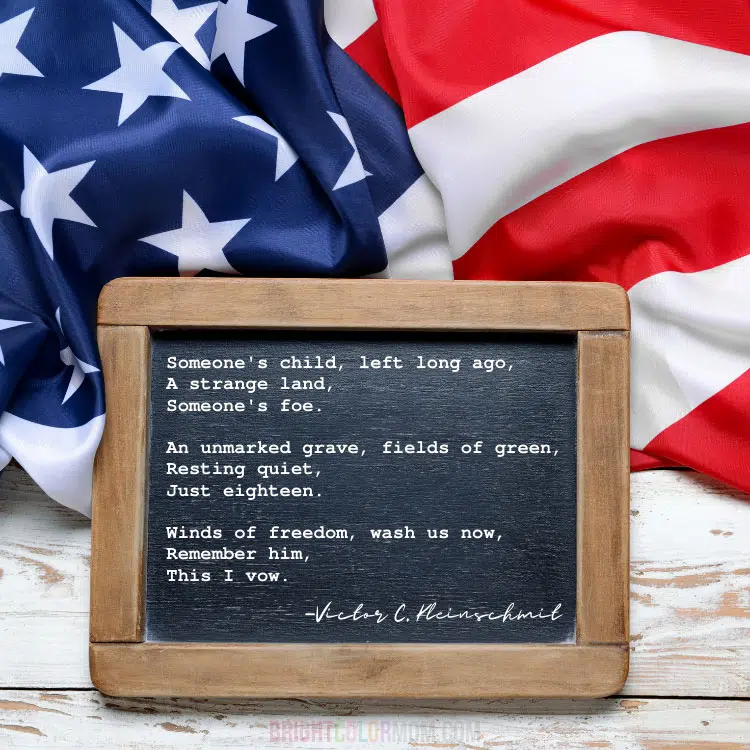 Someone's child, left long ago,
A strange land,
Someone's foe.
An unmarked grave, fields of green,
Resting quiet,
Just eighteen.
Winds of freedom, wash us now,
Remember him,
This I vow.
-Victor C. Kleinschmit
BRIGHTCOLORMOM.COM